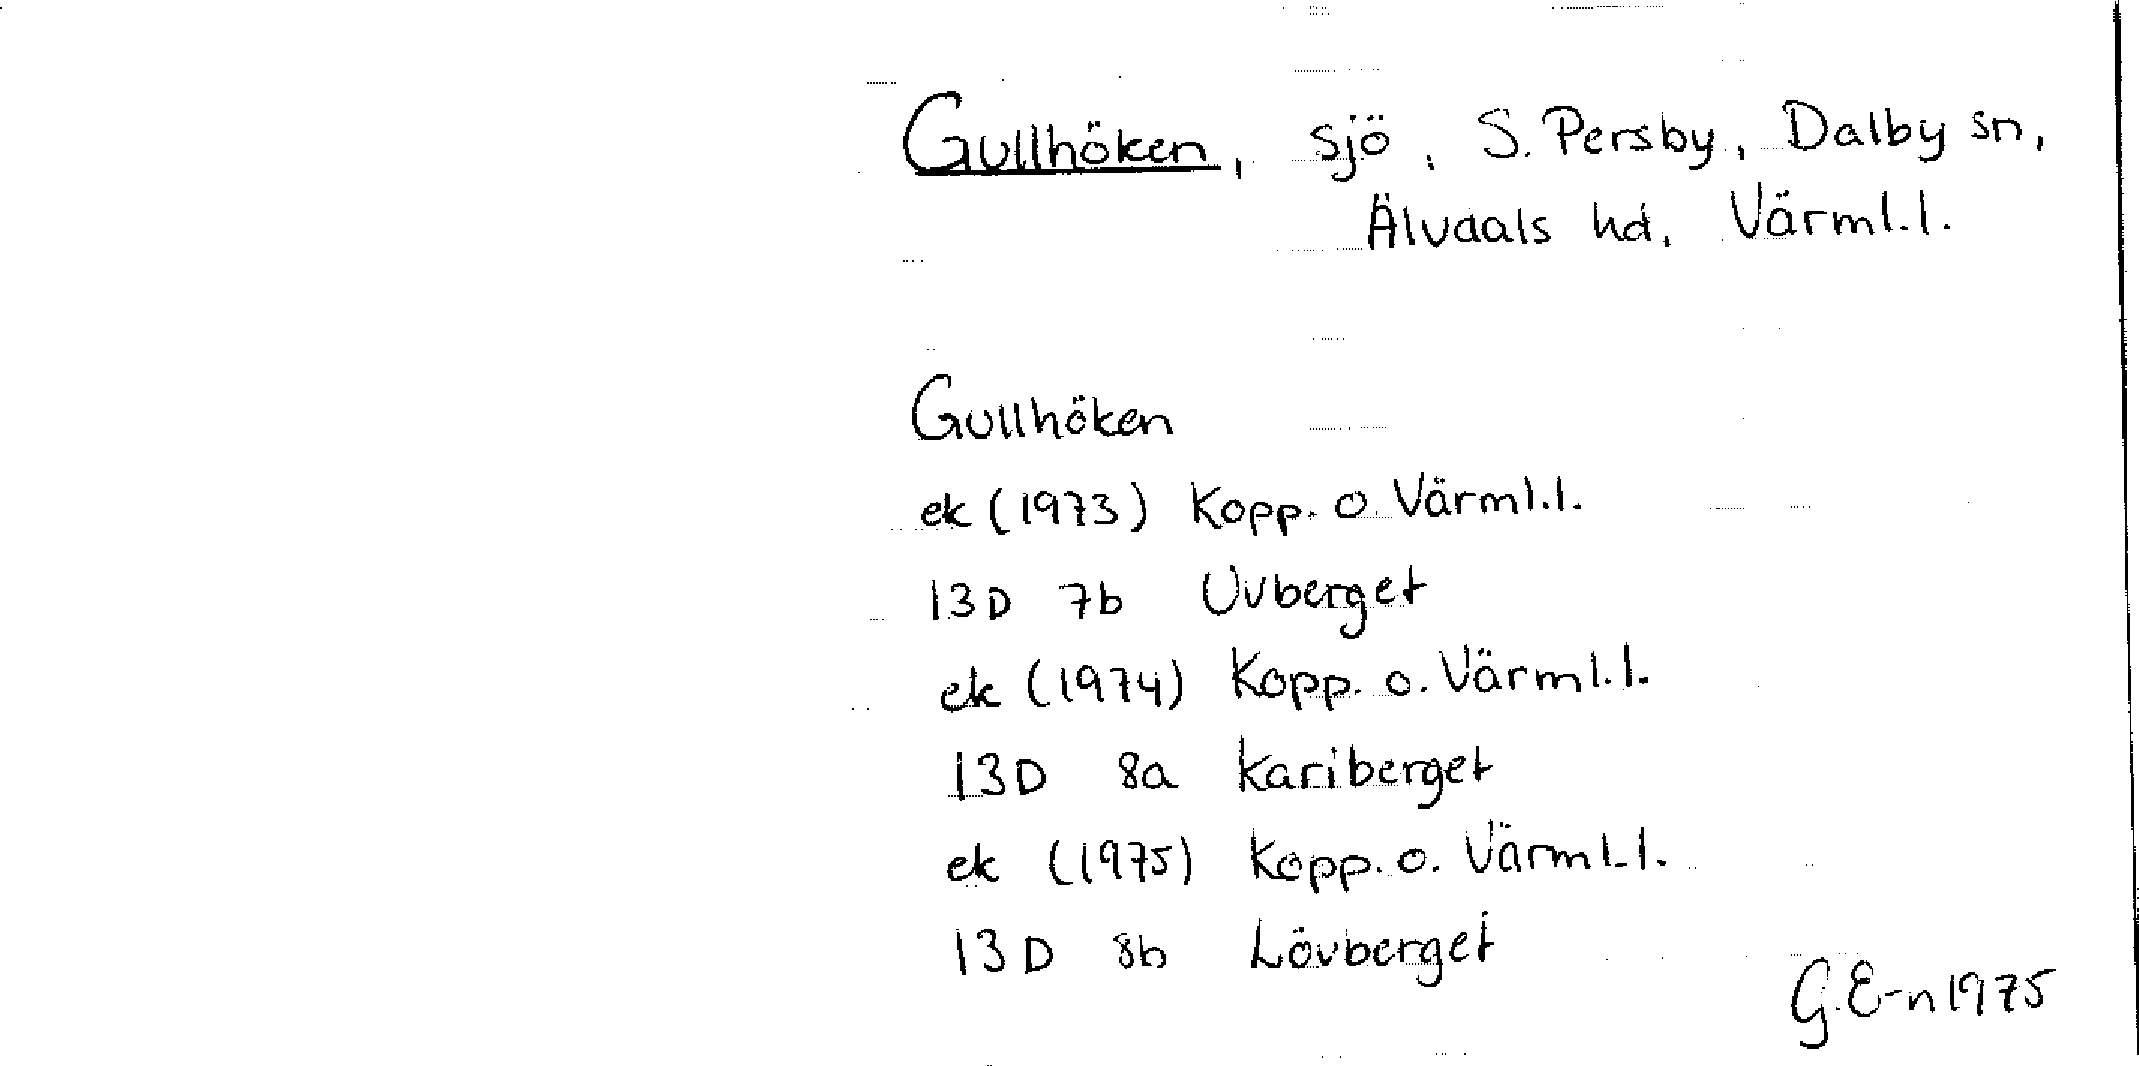 Gullhöken, sjö, S. Persby, Dalby sn,
Älvdals hd, Värml.l.
Gullhöken
ek (1973) Kopp. o. Värml.l.
13D 7b Uvberget
ek (1974) Kopp. o. Värml.l.
13D 8a Kariberget
ek (1975) Kopp. o. Värml.l.
13D 8b Lövberget
G.E-n 1975